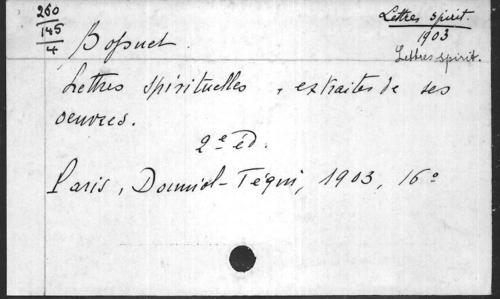 260
145
4
Lettres spirit.
1903
Lettres spirit.
Bossuet.
Lettres spirituelles, extraites de ses
oeuvres.
2e éd.
Paris, Douniol-Téqui, 1903, 16°